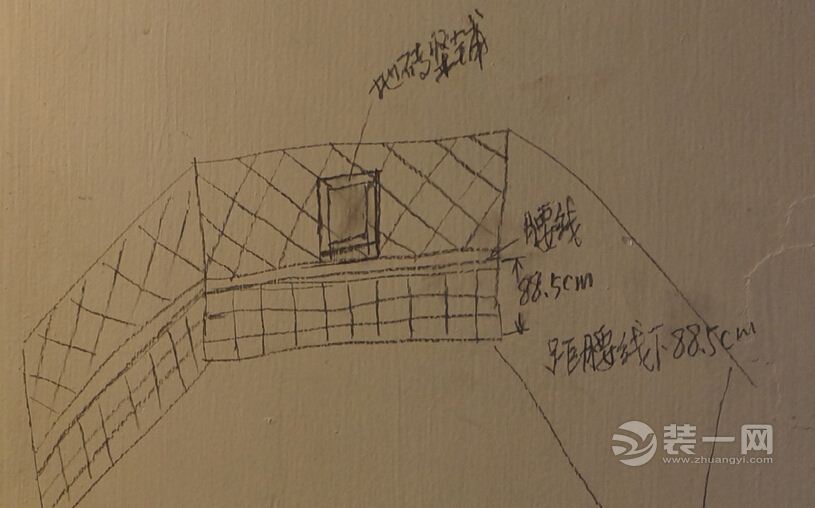 地砖竖铺
腰线
88.5cm
距腰线下88.5cm
装一网
www.zhuangyi.com